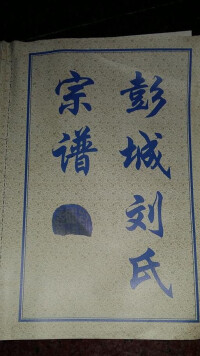 彭城刘氏
宗谱